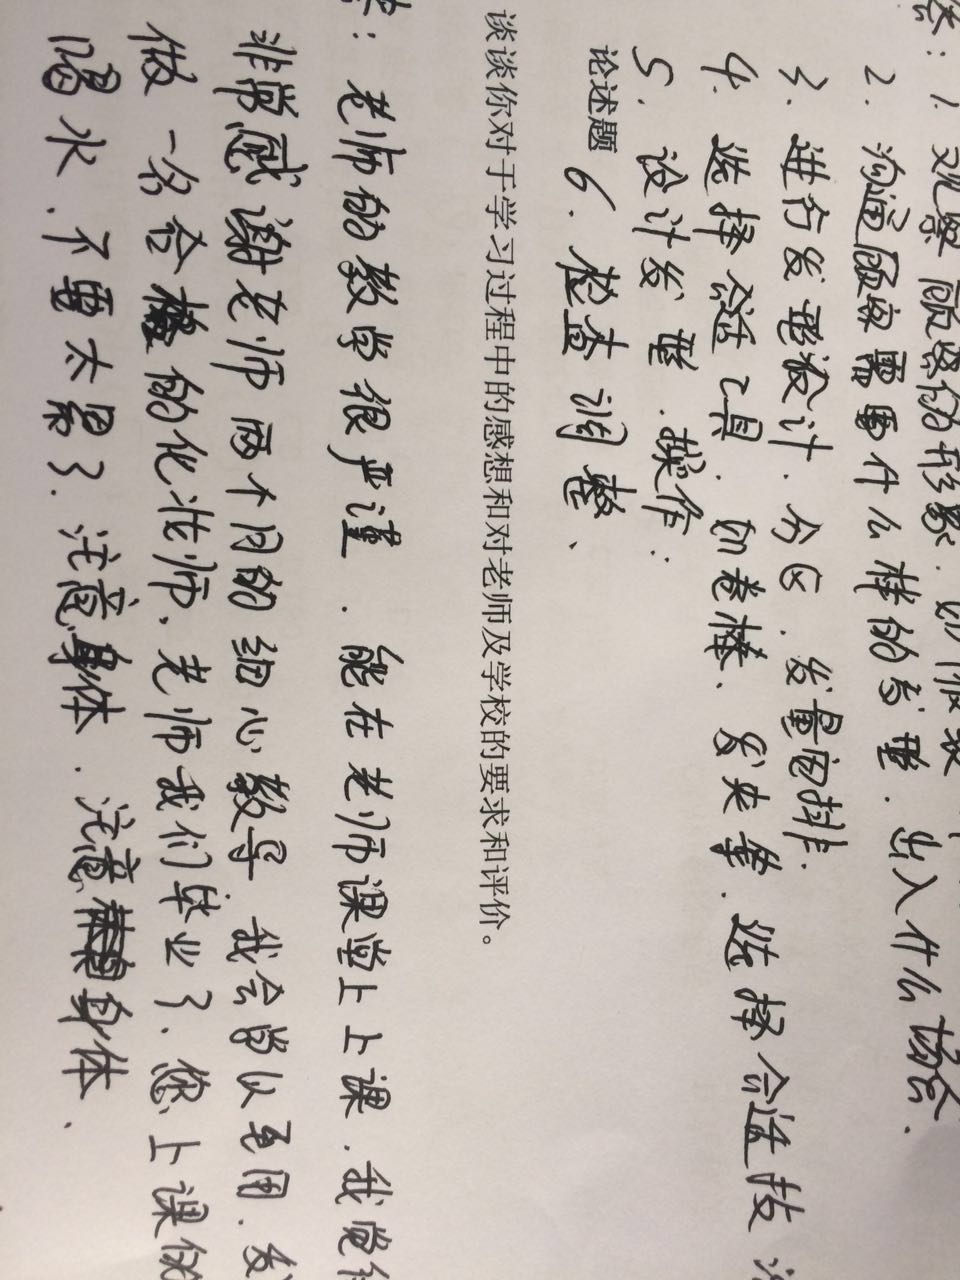 答：1. 观察顾客的形象. 如
2. 沟通顾客需要什么样的发型. 出入什么场合.
3. 进行发型设计. 分区. 发量

4. 选择合适工具. 如卷棒、发夹等. 选择合适技
5. 设计发型. 操作.
6. 检查调整、
论述题
谈谈你对于学习过程中的感想和对老师及学校的要求和评价。
答：老师的教学很严谨. 能在老师课堂上上课. 我觉得
非常感谢老师两个月的细心教导. 我会学以至用. 发
做一名合格的化妆师. 老师我们毕业了. 您上课
喝水. 不要太累了. 注意身体. 注意身体.